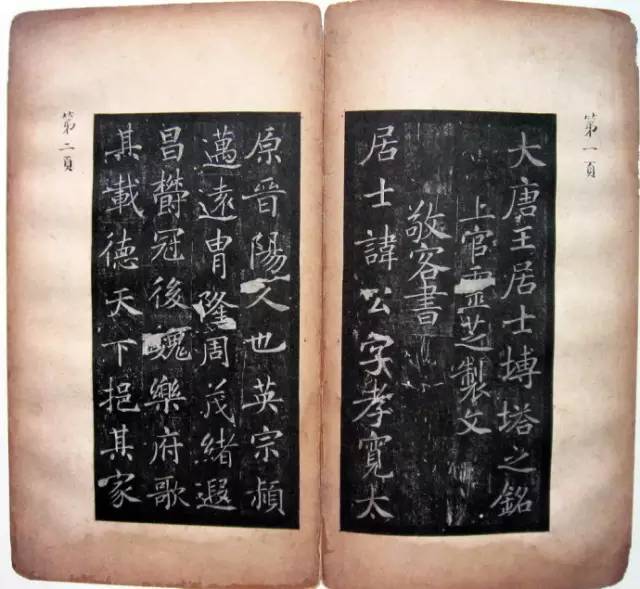 第一頁
大唐王居士塼塔之銘
上官靈芝製文
敬客書
居士諱公字孝寬太
原晉陽人也英宗穎
邁遠冑隆周茂緒遐
昌欝冠後魏樂府歌
其載德天下挹其家
第二頁